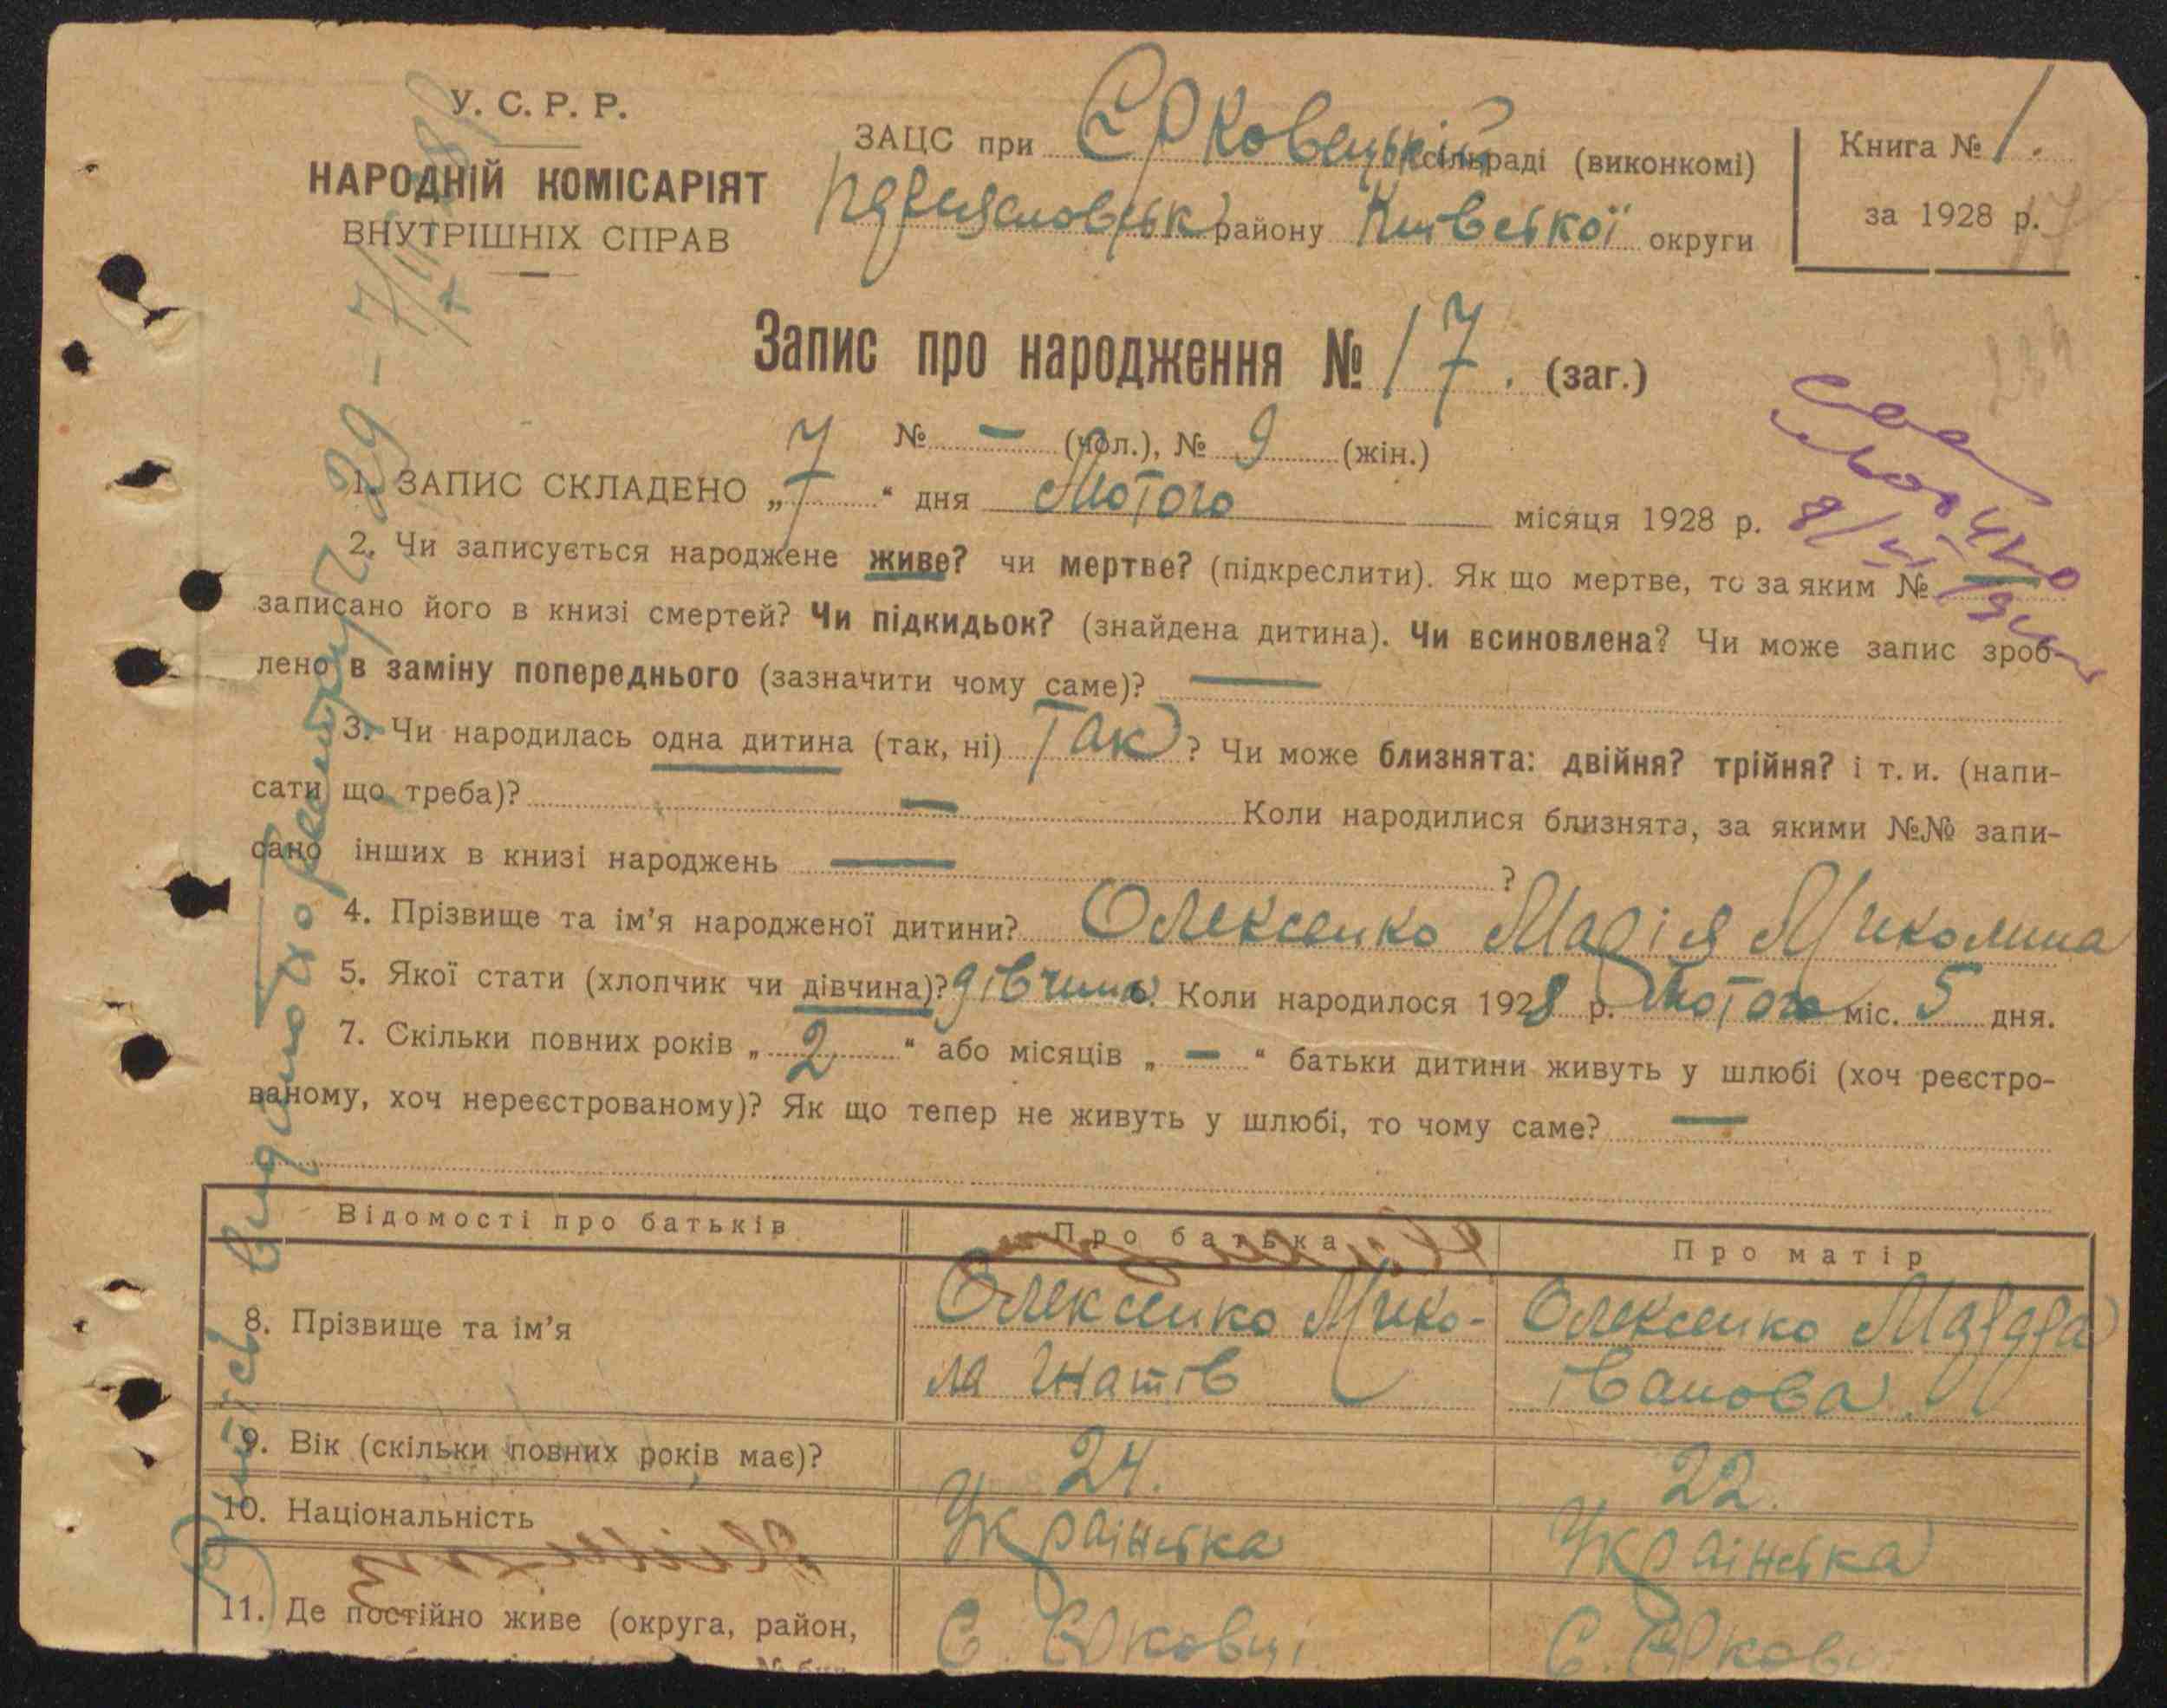 У. С. Р. Р.
НАРОДНІЙ КОМІСАРІЯТ
ВНУТРІШНІХ СПРАВ
ЗАЦС при Єрковецькій сільраді (виконкомі)
району Київської округи
Книга № 1.
за 1928 р.
Запис про народження № 17. (заг.)
№ — (чол.), № 9 (жін.)
1. ЗАПИС СКЛАДЕНО „7“ дня Лютого місяця 1928 р.
2. Чи записується народжене живе? чи мертве? (підкреслити). Як що мертве, то за яким № —
записано його в книзі смертей? Чи підкидьок? (знайдена дитина). Чи всиновлена? Чи може запис зроб-
лено в заміну попереднього (зазначити чому саме)? —
3. Чи народилась одна дитина (так, ні) Так? Чи може близнята: двійня? трійня? і т. и. (напи-
сати що треба)? — Коли народилися близнята, за якими №№ запи-
сано інших в книзі народжень — ?
4. Прізвище та ім'я народженої дитини? Олексенко Марія Миколина
5. Якої стати (хлопчик чи дівчина)? дівчина 6. Коли народилося 1928 р. Лютого міс. 5 дня.
7. Скільки повних років „2“ або місяців „—“ батьки дитини живуть у шлюбі (хоч реєстро-
ваному, хоч нереєстрованому)? Як що тепер не живуть у шлюбі, то чому саме? —
Відомості про батьків Про батька Про матір
8. Прізвище та ім'я Олексенко Мико- Олексенко
ла Гнатів Іванова
9. Вік (скільки повних років має)? 24. 22.
10. Національність Українська Українська
11. Де постійно живе (округа, район, С. Єрковці С. Єркові